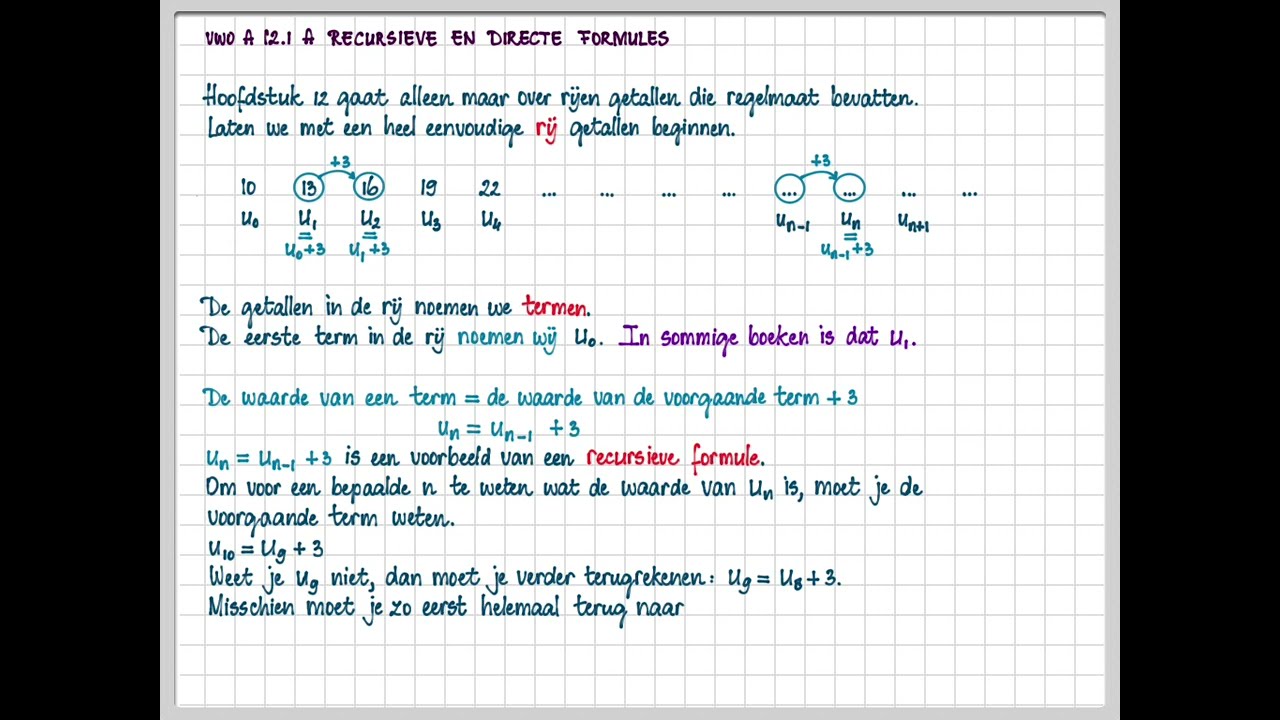 VWO A 12.1 A RECURSIEVE EN DIRECTE FORMULES
Hoofdstuk 12 gaat alleen maar over rijen getallen die regelmaat bevatten.
Laten we met een heel eenvoudige rij getallen beginnen.
+3 +3
10 13 16 19 22 ... ... ... ... ... ... ... ...
u₀ u₁ u₂ u₃ u₄ uₙ₋₁ uₙ uₙ₊₁
= = =
u₀+3 u₁+3 uₙ₋₁+3
De getallen in de rij noemen we termen.
De eerste term in de rij noemen wij u₀. In sommige boeken is dat u₁.
De waarde van een term = de waarde van de voorgaande term + 3
uₙ = uₙ₋₁ + 3
uₙ = uₙ₋₁ + 3 is een voorbeeld van een recursieve formule.
Om voor een bepaalde n te weten wat de waarde van uₙ is, moet je de
voorgaande term weten.
u₁₀ = u₉ + 3
Weet je u₉ niet, dan moet je verder terugrekenen: u₉ = u₈ + 3.
Misschien moet je zo eerst helemaal terug naar